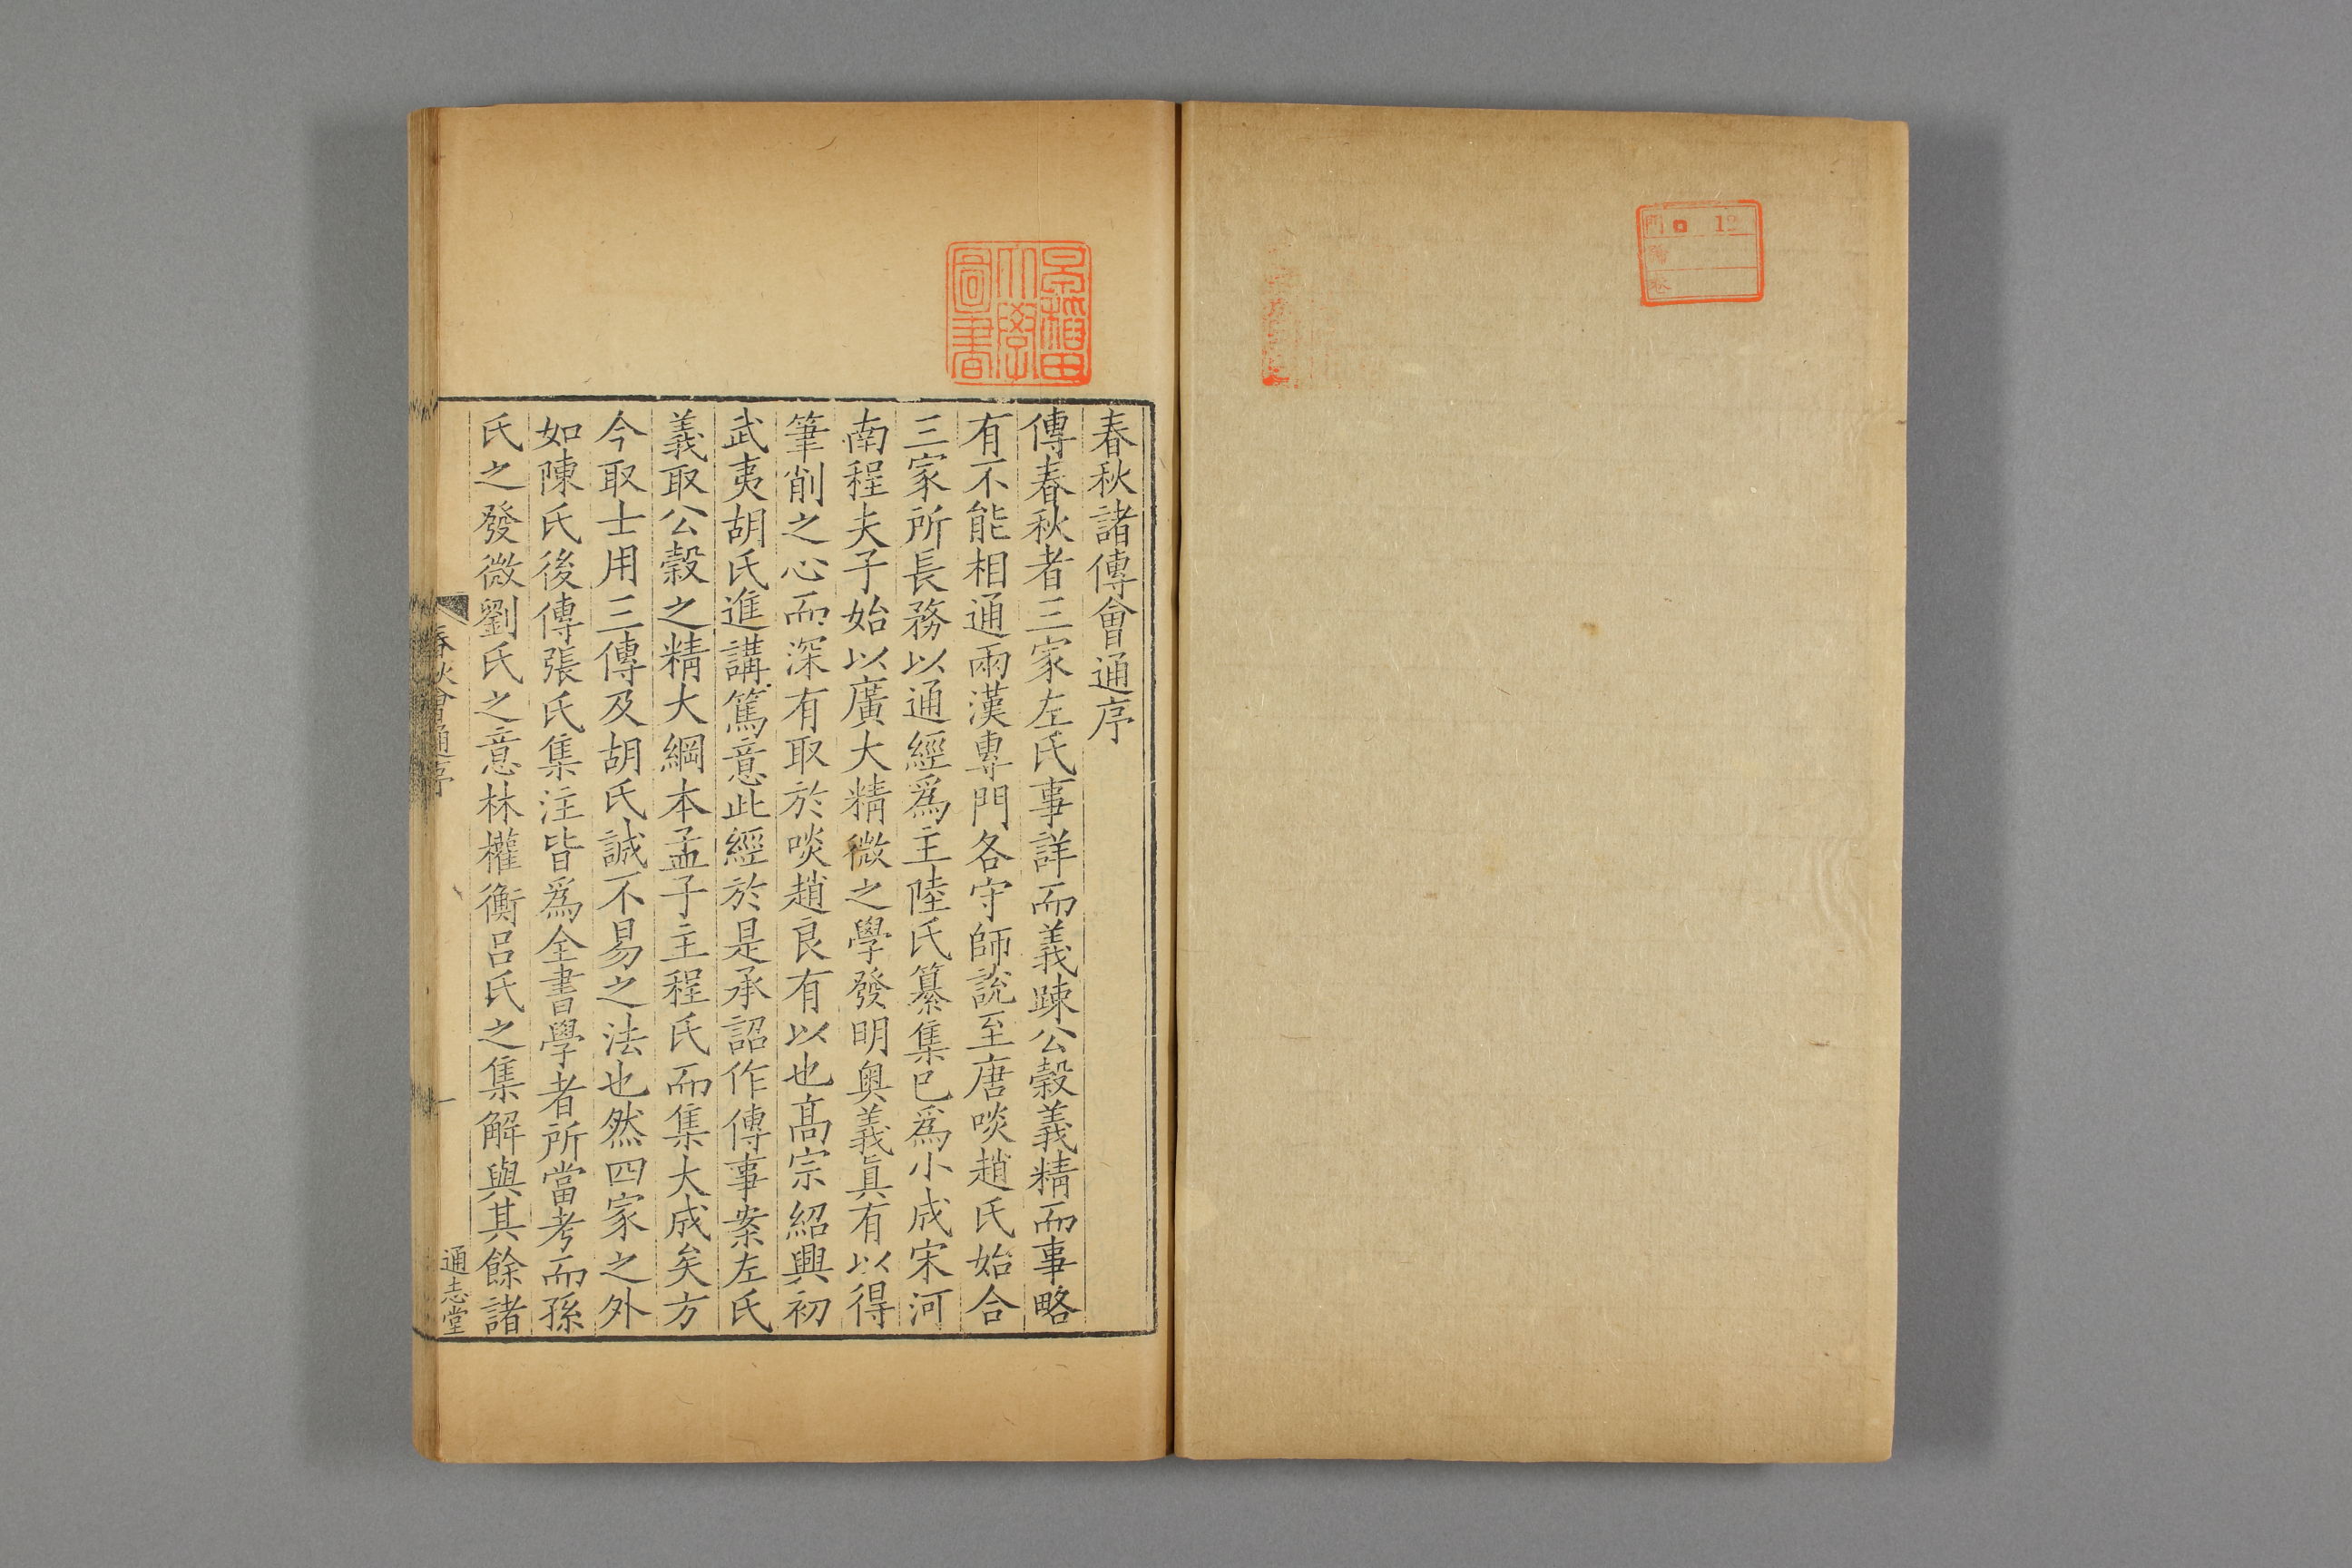 門 12
號
卷
早稲田
大學
圖書
春秋諸傳會通序
傳春秋者三家左氏事詳而義踈公穀義精而事略
有不能相通兩漢專門各守師說至唐啖趙氏始合
三家所長務以通經爲主陸氏纂集已爲小成宋河
南程夫子始以廣大精微之學發明奥義眞有以得
筆削之心而深有取於啖趙良有以也髙宗紹興初
武夷胡氏進講篤意此經於是承詔作傳事案左氏
義取公穀之精大綱本孟子主程氏而集大成矣方
今取士用三傳及胡氏誠不易之法也然四家之外
如陳氏後傳張氏集注皆爲全書學者所當考而孫
氏之發微劉氏之意林權衡吕氏之集解與其餘諸
春秋會通序
一
通志堂